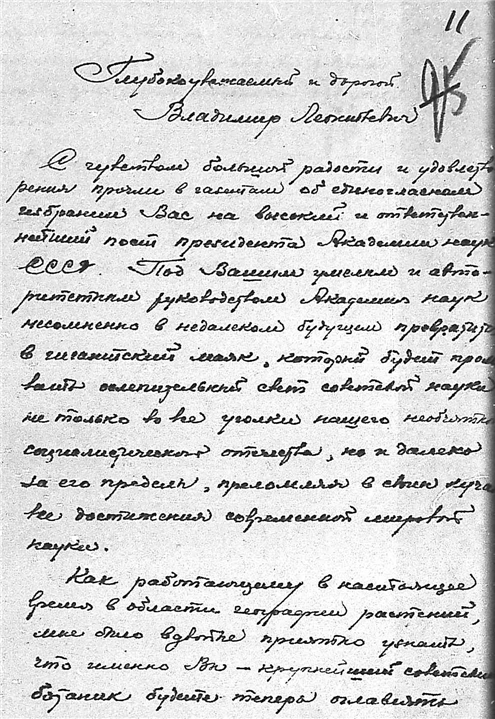 11
Глубокоуважаемый и дорогой
Владимир Леонтьевич
С чувством большой радости и удовлетво
рения прочли в газетах об единогласном
избрании Вас на высокий и ответствен-
нейший пост президента Академии наук
СССР. Под Вашим умелым и авто-
ритетным руководством Академия наук
несомненно в недалеком будущем превратит
в гигантский маяк, который будет про
вать ослепительный свет советской науки
не только во все уголки нашего необъятно
социалистического отечества, но и далеко
за его пределы, преломляя в своих луча
все достижения современной мировой
науки.
Как работающему в настоящее
время в области географии растений,
мне было вдвойне приятно узнать,
что именно Вы – крупнейший советский
ботаник будете теперь оглавлять